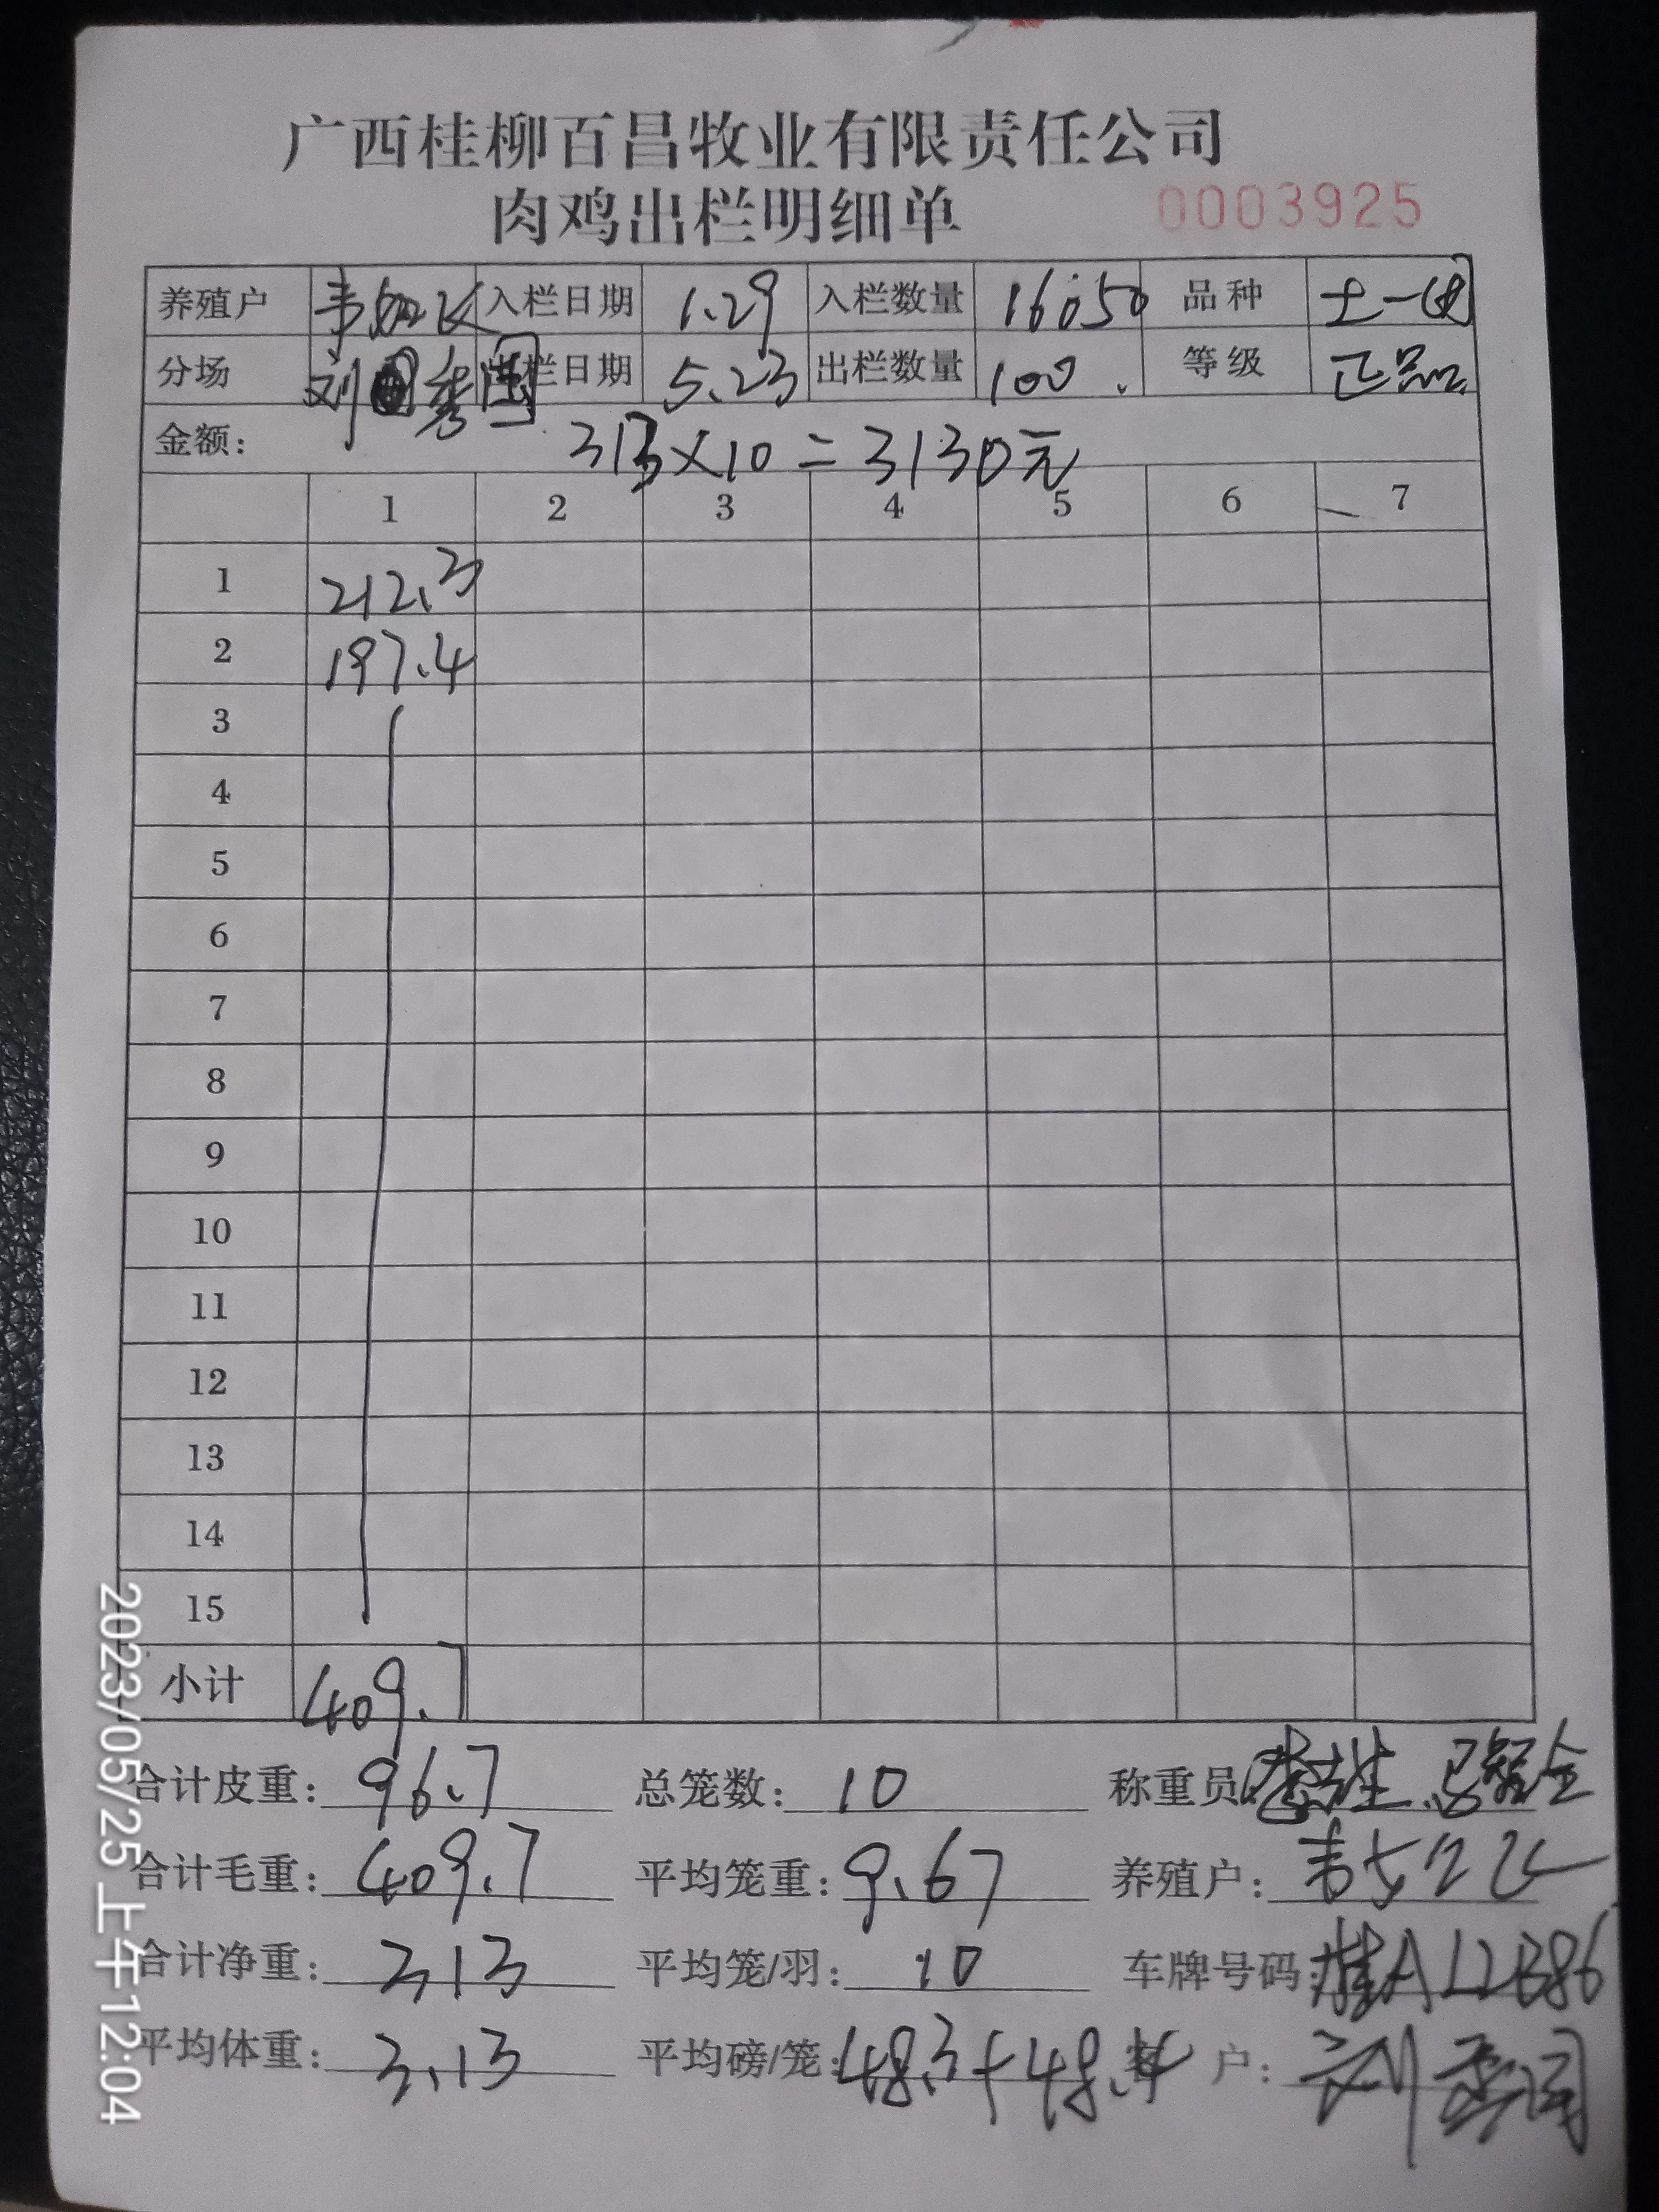 广西桂柳百昌牧业有限责任公司
肉鸡出栏明细单 0003925
养殖户 韦 入栏日期 1.29 入栏数量 16050 品种 土一
分场 刘秀国 出栏日期 5.23 出栏数量 100 等级 正品
金额: 313×10=3130元
1 2 3 4 5 6 7
1 212.3
2 197.4
3
4
5
6
7
8
9
10
11
12
13
14
15
小计 409.7
合计皮重: 96.7 总笼数: 10 称重员
合计毛重: 409.7 平均笼重: 9.67 养殖户: 韦
合计净重: 313 平均笼/羽: 10 车牌号码: 桂AL2B86
平均体重: 3.13 平均磅/笼: 48.3+48.4 客户: 刘秀国
2023/05/25 上午12:04